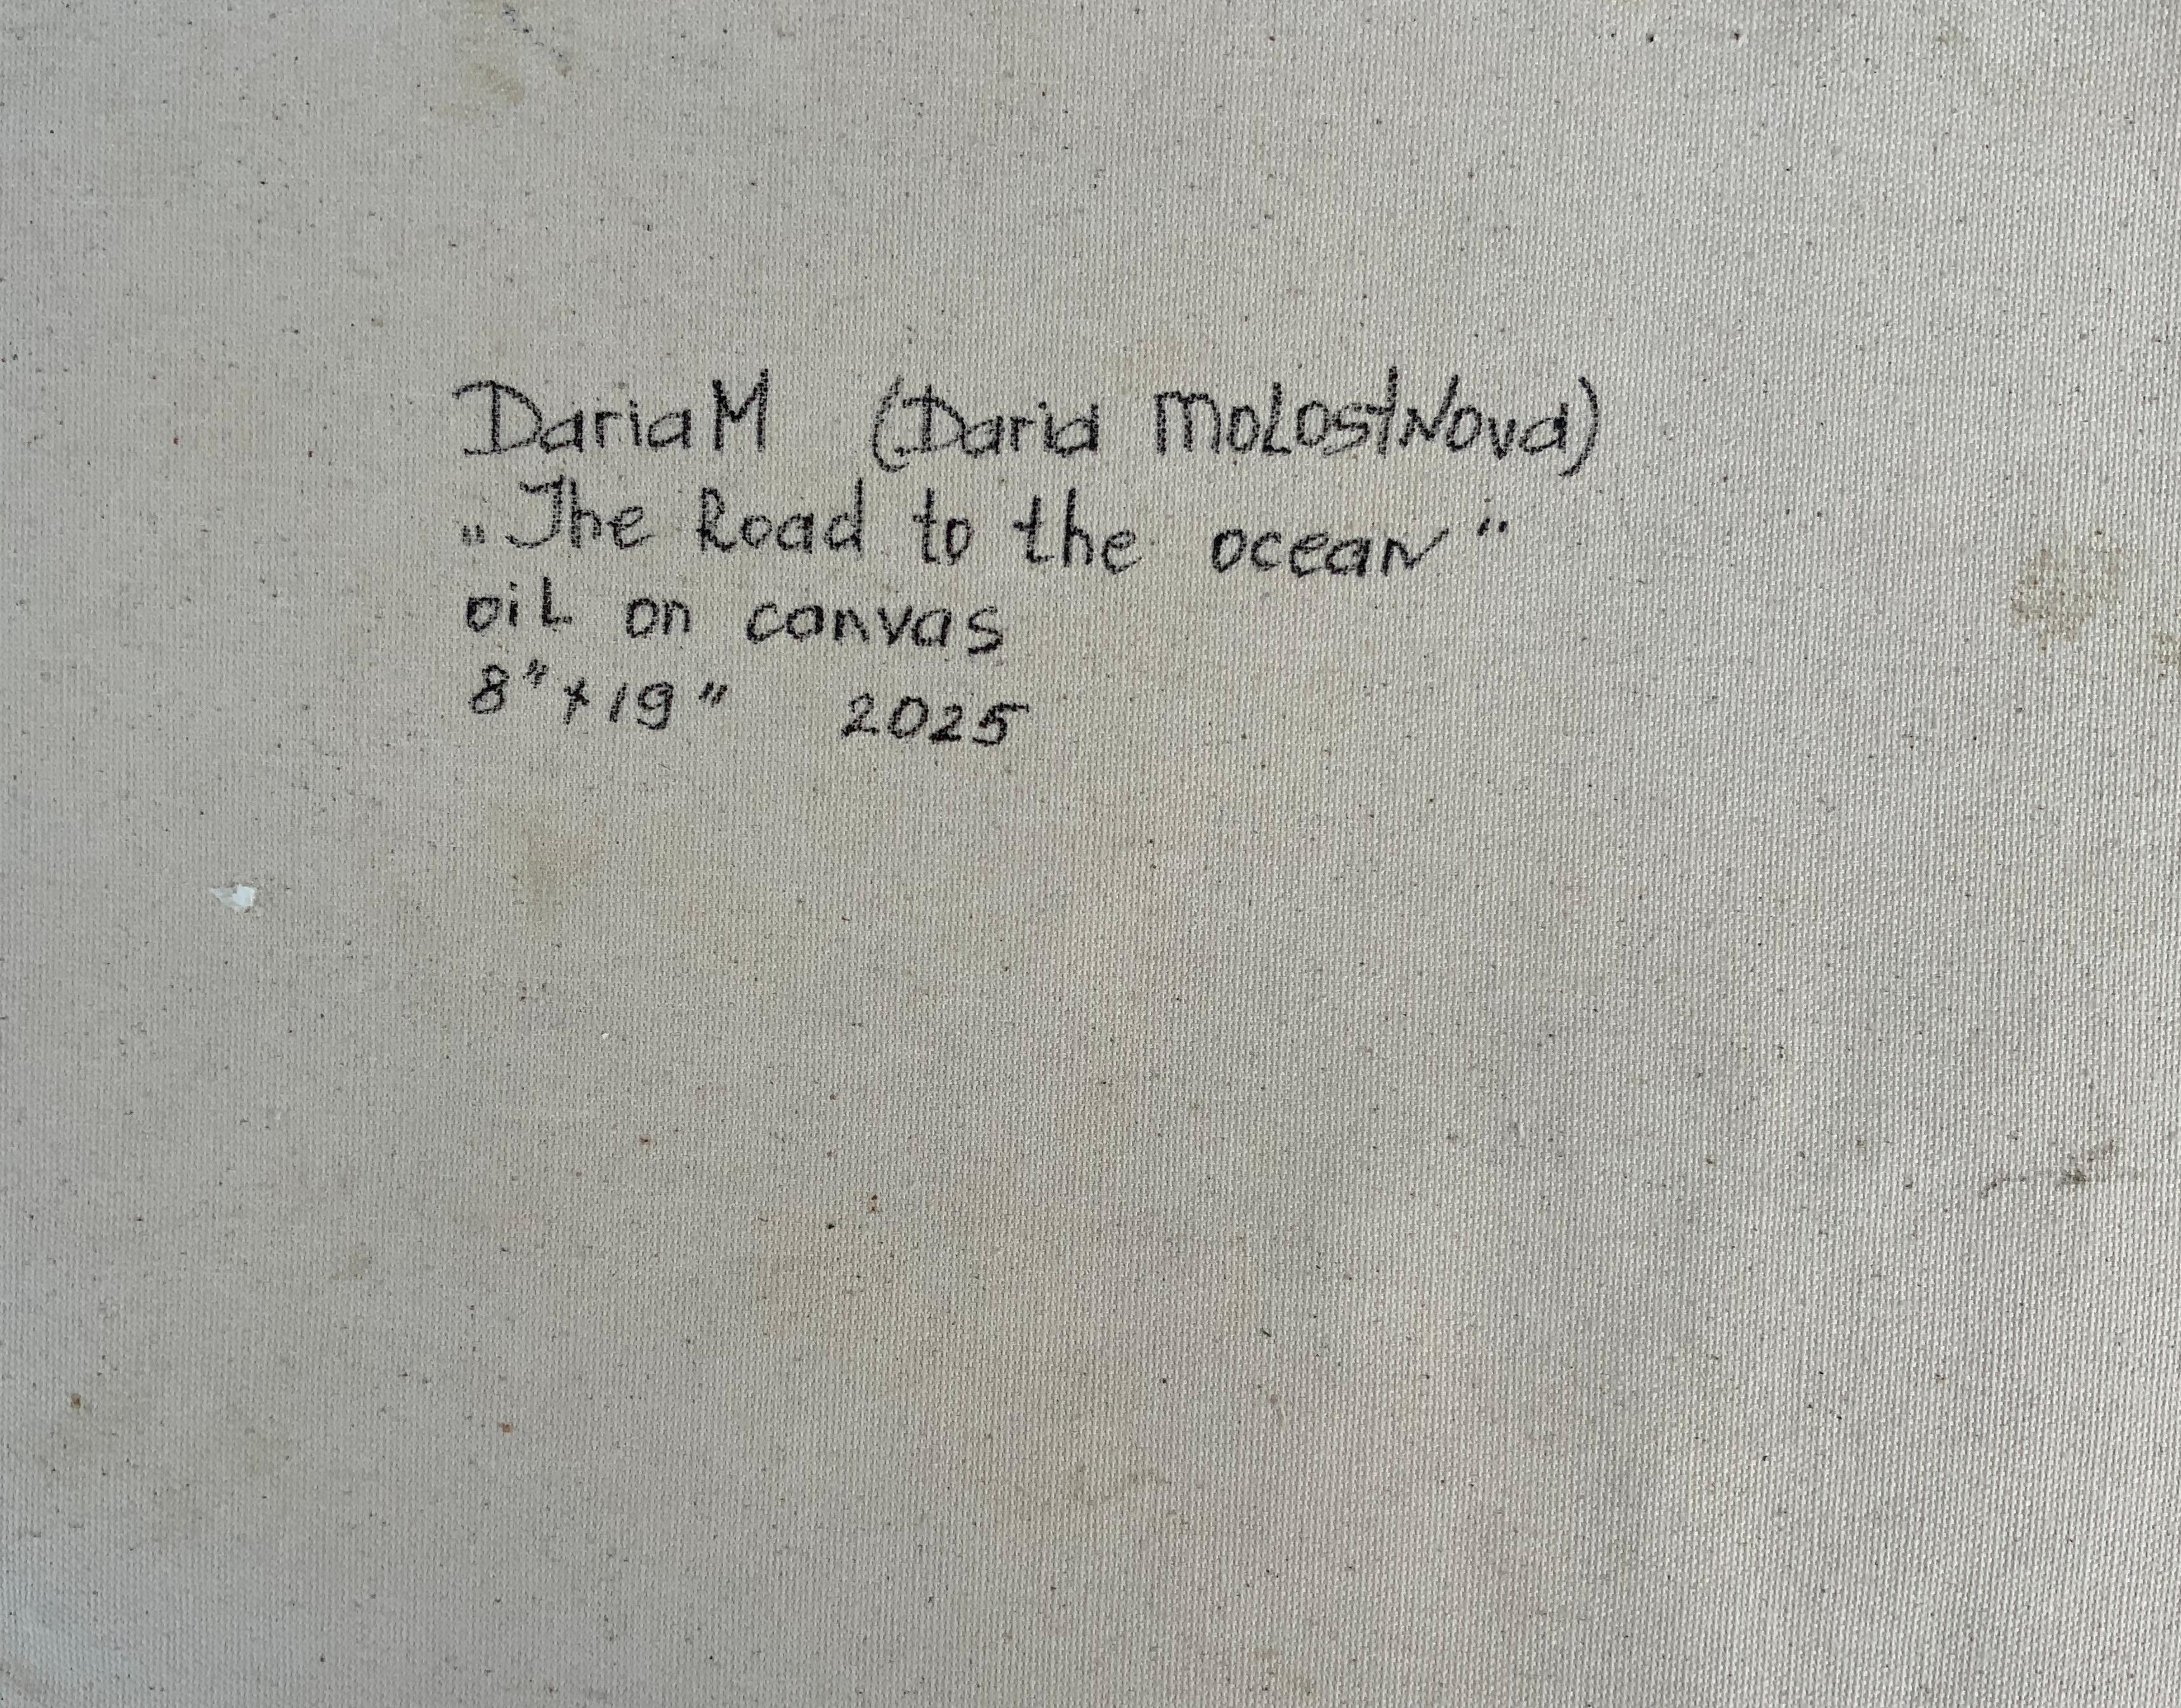 Daria M (Daria MoLostNova)
„The Road to the ocean"
oiL on canvas
8" x 19" 2025